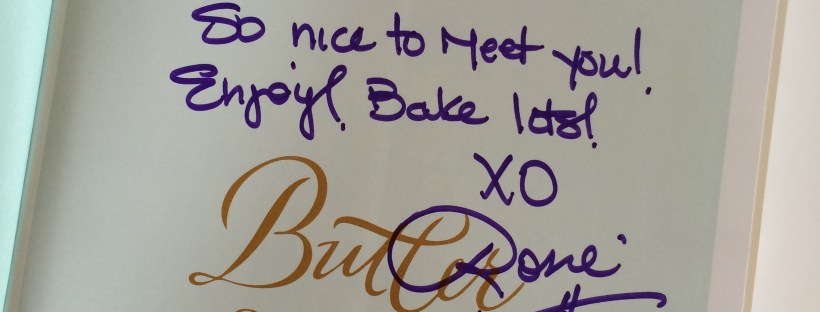 So nice to Meet you!
Enjoy! Bake lots!
XO
Butter